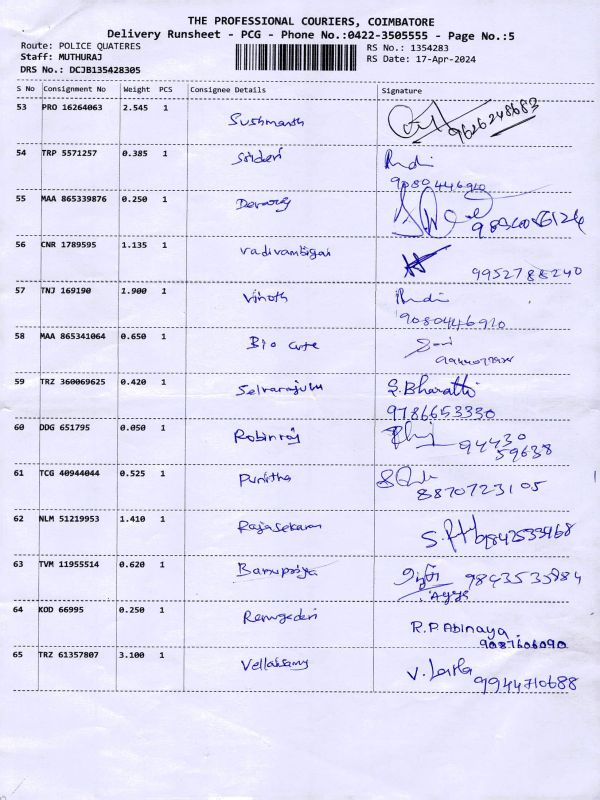 THE PROFESSIONAL COURIERS, COIMBATORE
Delivery Runsheet - PCG - Phone No.:0422-3505555 - Page No.:5
Route: POLICE QUATERES RS No.: 1354283
Staff: MUTHURAJ RS Date: 17-Apr-2024
DRS No.: DCJB135428305
S No Consignment No Weight PCS Consignee Details Signature
53 PRO 16264063 2.545 1 Sushmanth
9626248683
54 TRP 5571257 0.385 1 Sridevi
9080446920
55 MAA 865339876 0.250 1 Devaraj
56 CNR 1789595 1.135 1 Vadivambigai
9952788240
57 TNJ 169190 1.900 1 Vinoth
9080446920
58 MAA 865341064 0.650 1 Bio care
59 TRZ 360069625 0.420 1 Selvarajulu S. Bharathi
9786653330
60 DDG 651795 0.050 1 Robinraj
94430
59638
61 TCG 40944044 0.525 1 Punitha
8870723105
62 NLM 51219953 1.410 1 Rajasekaran
63 TVM 11955514 0.620 1 Banupriya
9843533984
64 KOD 66995 0.250 1 Renugadevi R.P. Abinaya
9087606090
65 TRZ 61357807 3.100 1 Vellaisamy V. Latha
9944710688